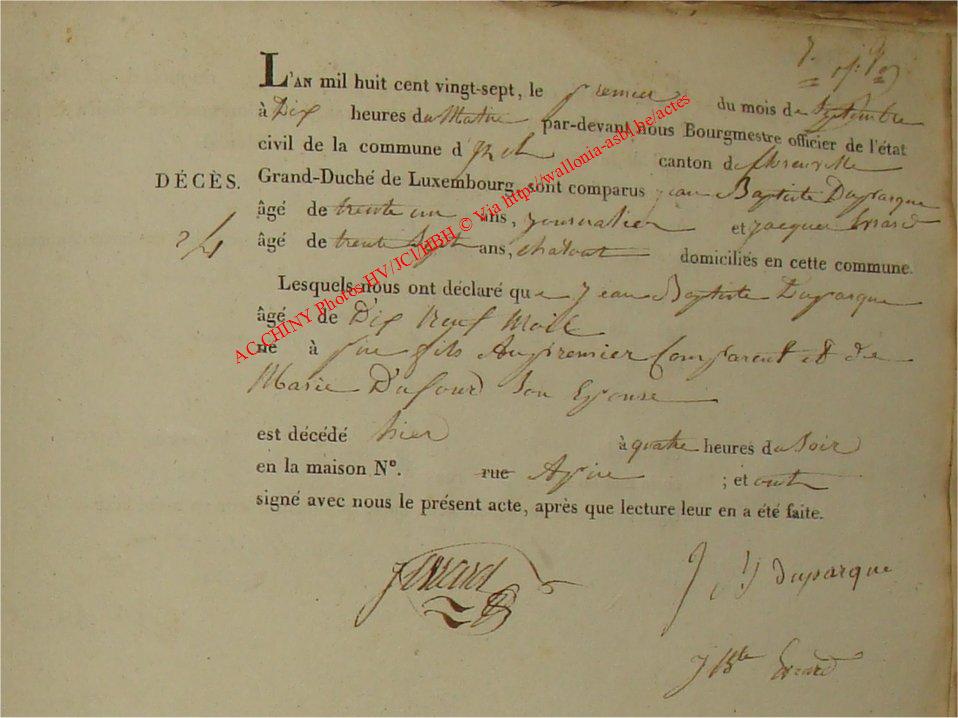 L'AN mil huit cent vingt-sept, le premier du mois de Septembre
à Dix heures du Matin par-devant nous Bourgmestre officier de l'état
civil de la commune d' canton de
DÉCÈS. Grand-Duché de Luxembourg, sont comparus jean Baptiste Duparque
âgé de trente un ans, journalier et jacques Evrard
âgé de trente Sept ans, domiciliés en cette commune.
Lesquels nous ont déclaré que jean Baptiste Duparque
âgé de Dix Neuf Mois
né à fils Au premier Comparent et de
Marie Dufourd Son Epouse
est décédé hier à quatre heures du Soir
en la maison Nº. rue ; et ont
signé avec nous le présent acte, après que lecture leur en a été faite.
J duparque
J Bte Evrard
AC CHINY Photos HV/JCI/HBH © Via http://wallonia-asbl.be/actes